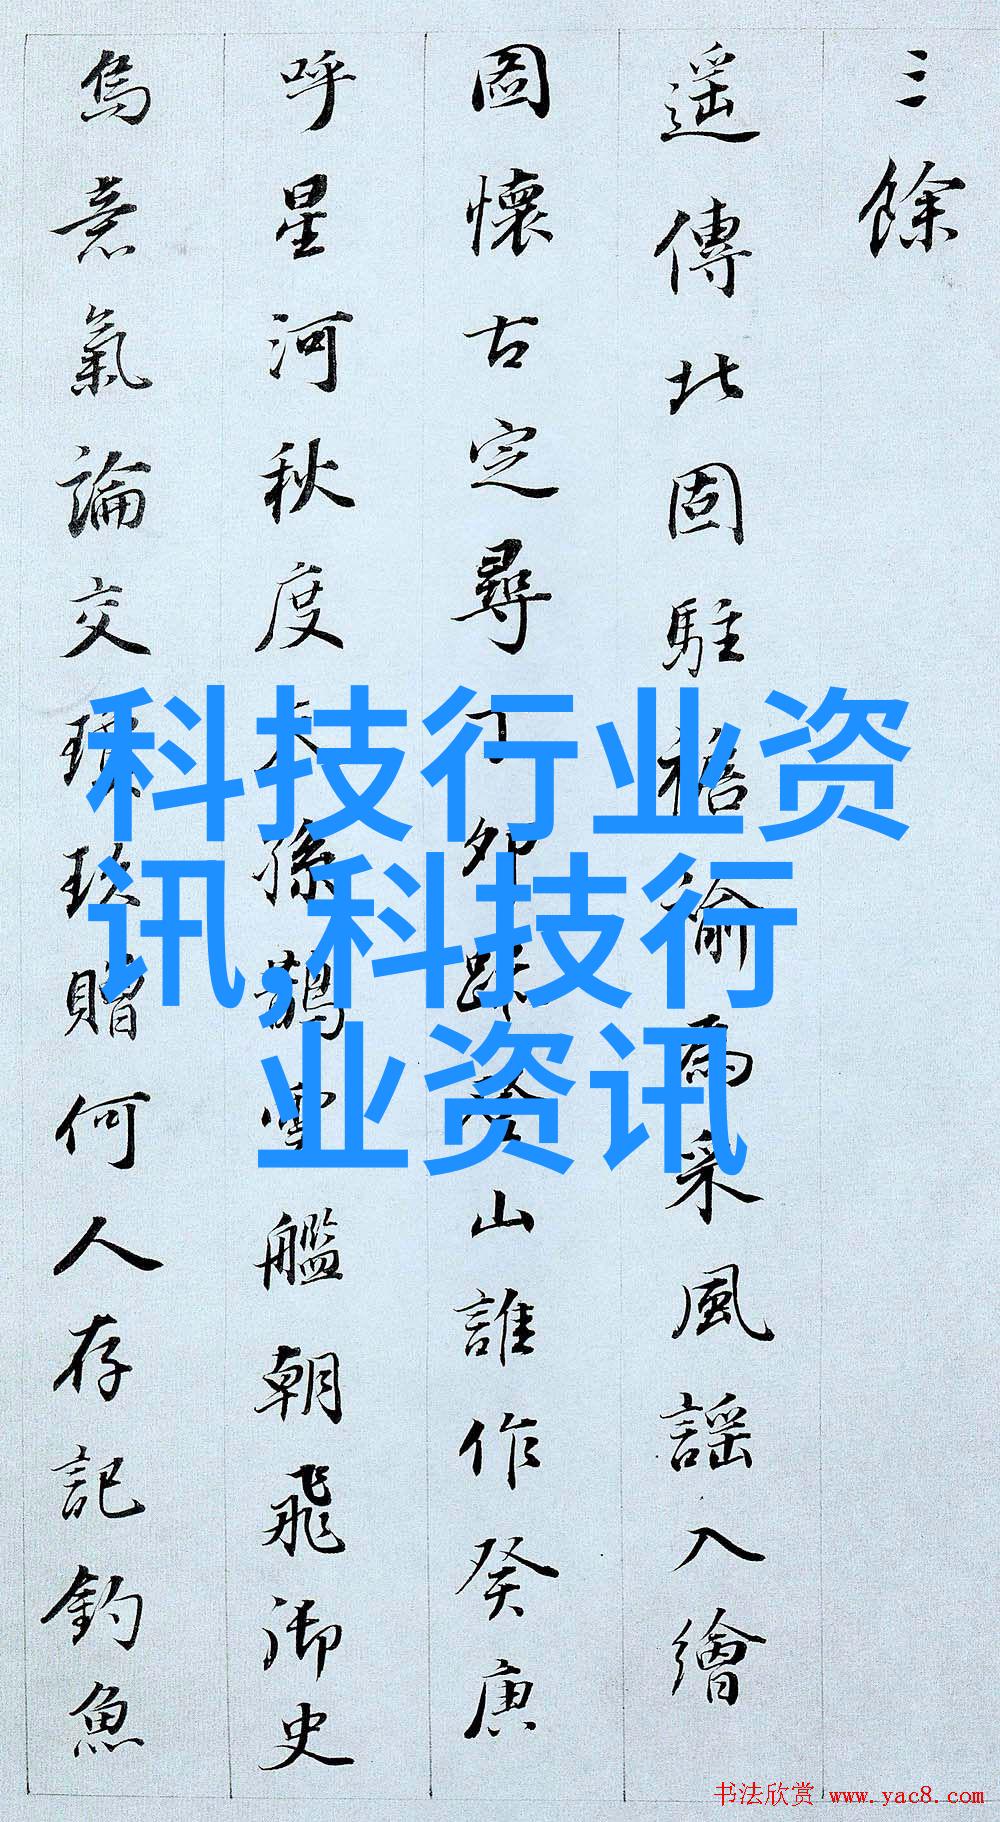 三餘
遥傳北固駐襜褕雨采風謡入繪
圖懷古定尋丁卯跡登山誰作癸庚
呼星河秋度天孫鵲雪艦朝飛御史
烏意氣論交瓊玖贈何人存記釣魚
科技行业资
讯,科技行
业资讯
书法欣赏 www.yac8.com